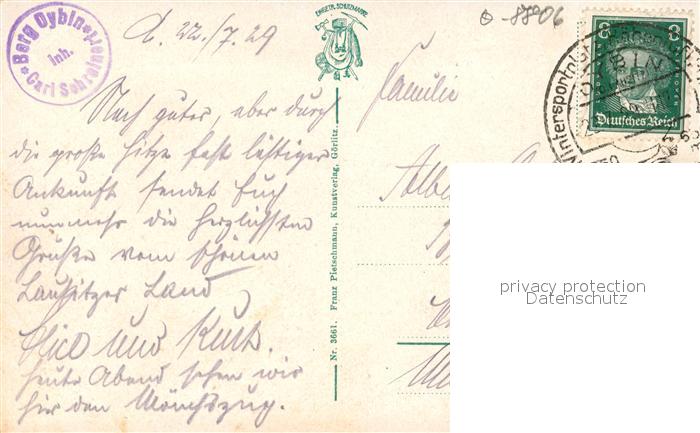 Berg Oybin
Inh.
Carl Schre
d. 22./7. 29
EINGETR. SCHUTZMARKE
88906
8 8
Deutsches Reich
OYBIN
Wintersportplatz
Familie
Nach guter, aber durch
die große Hitze fast lästiger
Ankunft sendet Euch
nunmehr die herzlichsten
Grüße vom schönen
Lausitzer Land
und Kurt.
heute Abend sehen wir
hier den Mönchszug.
Nr. 3661. Franz Pietschmann, Kunstverlag, Görlitz.
privacy protection
Datenschutz